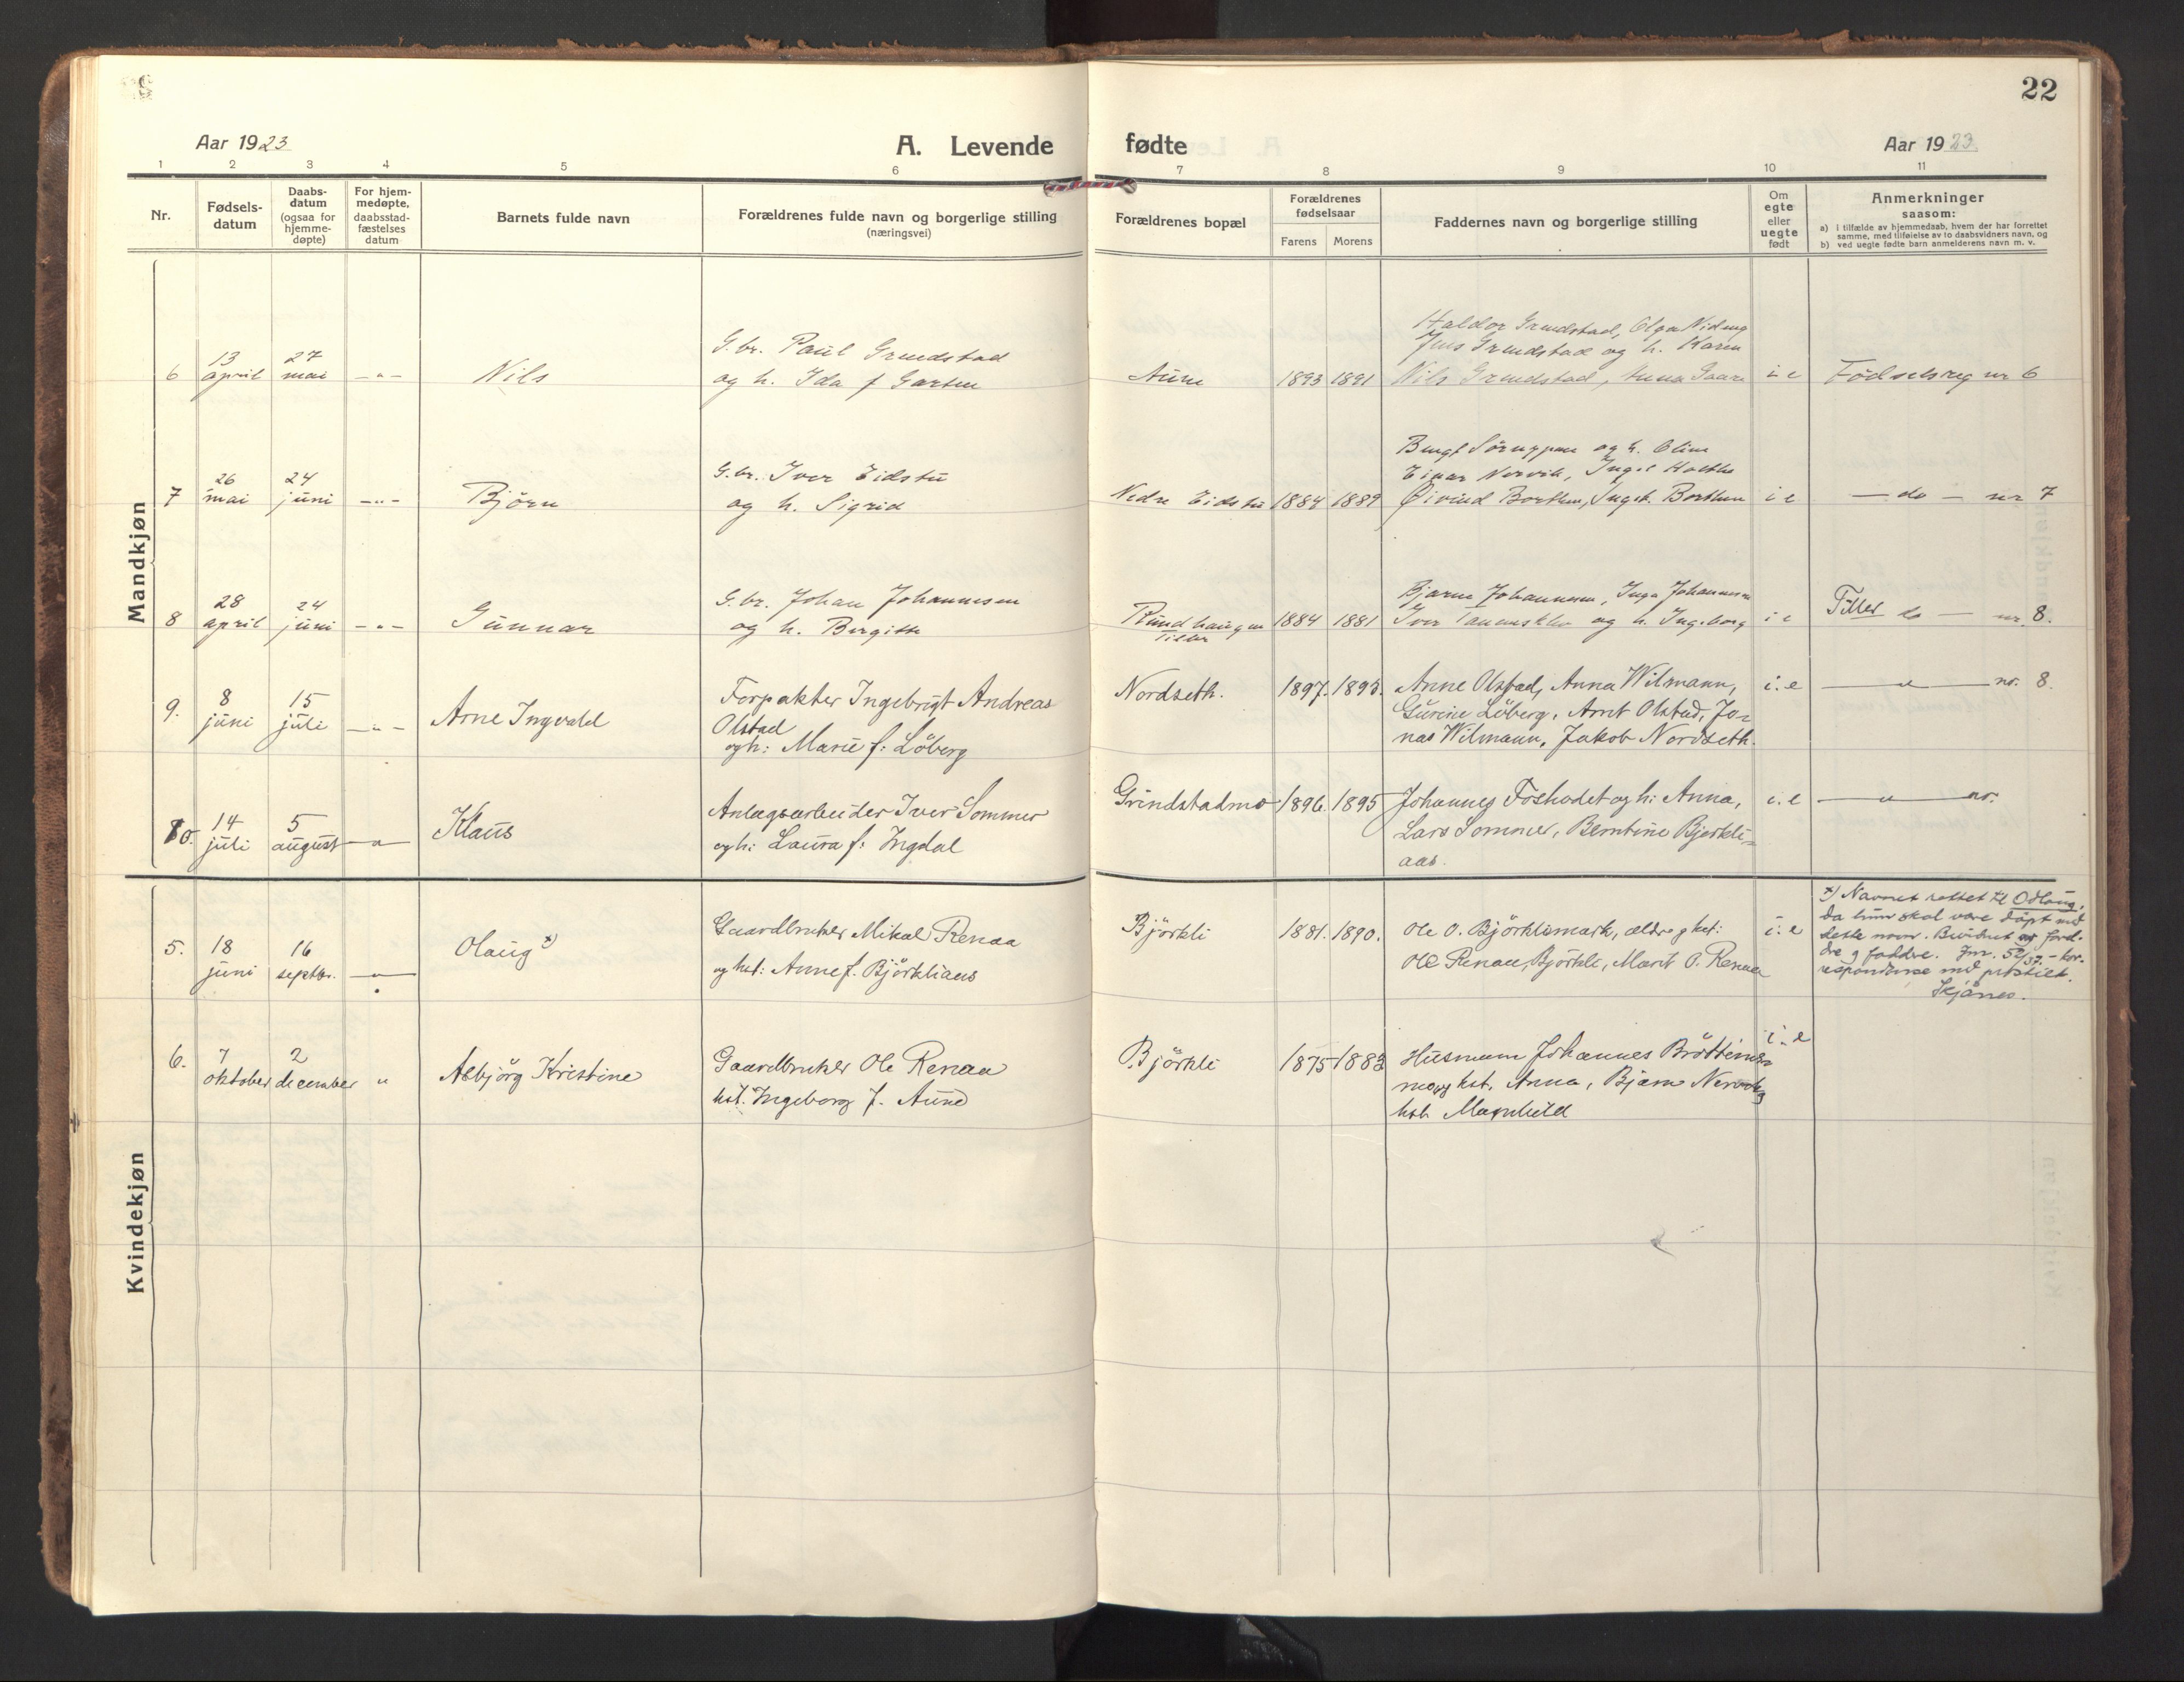 22
Aar 1923
A. Levende fødte
Aar 1923
1 2 3 4 5 6 7 8 9 10 11
Nr.
Fødsels-
datum
Daabs-
datum
(ogsaa for
hjemme-
døpte)
For hjem-
medøpte,
daabsstad-
fæstelses
datum
Barnets fulde navn
Forældrenes fulde navn og borgerlige stilling
(næringsvei)
Forældrenes bopæl
Forældrenes
fødselsaar
Farens Morens
Faddernes navn og borgerlige stilling
Om
egte
eller
uegte
født
Anmerkninger
saasom:
a) i tilfælde av hjemmedaab, hvem der har forrettet
samme, med tilføielse av to daabsvidners navn, og
b) ved uegte fødte barn anmelderens navn m. v.
Mandkjøn
6 13 april 27 mai - " - Nils
G. br. Paul Grendstad
og h. Ida f Garten
Aune 1893 1891
Haldor Grendstad, Olga
Jens Grendstad og h. Karen
Nils Grendstad, Anna
i e Födselsreg nr 6
7 26 mai 24 juni - " - Björn
G. br. Iver Eidstu
og h. Sigrid
Nedre Eidstu 1884 1889
og h. Oline
Einar Nervik,
Øivind Borthen, Ingeb. Borthen
i e - do - nr 7
8 28 april 24 juni - " - Gunnar
G. br. Johan Johannesen
og h. Birgitte
Rundhaugen
Tiller
1884 1881
Bjarne Johannesen, Inga Johannesen
Iver og h. Ingeborg
i e Tiller do - nr. 8.
9. 8 juni 15 juli - " - Arne Ingvald
Forpakter Ingebrigt Andreas
Olstad
og h: Marie f: Löberg
Nordseth. 1897. 1893.
Anne Olstad, Anna Wilmann,
Gurine Löberg, Arnt Olstad, Jo-
nas Wilmann, Jakob Nordseth.
i. e — " — nr. 8.
10. 14 juli 5 august — " — Klaus
Anlægsarbeider Iver Sommer
og h: Laura f: Ingdal
Grindstadmo 1896. 1895
Johannes Foshodet og h: Anna,
Lars Sommer, Berntine Bjerkli-
aas.
i. e — " — nr.
Kvindekjøn
5. 18 juni 16 septbr. — " — Olaug x)
Gaardbruker Mikal Renaa
og hst: Anne f. Björkliaas
Björkli 1881. 1890.
Ole O. Björklimark, ældre og hst:
Ole Renaa, Björkli, Marit O. Renaa
i. e
x) Navnet rettet til Odlaug,
da hun skal være døpt med
dette navn. Bevidnet av foreld-
re og faddre. Jnr. 52/37. - kor-
respondanse med
Skjånes.
6. 7 oktober 2 december " Asbjörg Kristine
Gaardbruker Ole Renaa
hst. Ingeborg f. Aune
Björkli 1875 1883
Husmann Johannes Bröttems-
mo og hst. Anna, Bjarne Nervik og
hst. Magnhild
i. e